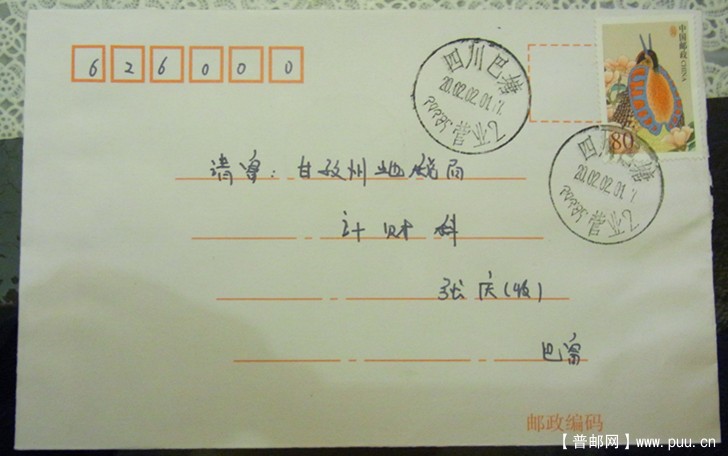 626000
四川巴塘
2002.02.01.17
营业2
中国邮政 CHINA
80
四川巴塘
2002.02.01.17
营业2
请寄:甘孜州地税局
计财科
张庆(收)
巴寄
邮政编码
【普邮网】www.puu.cn